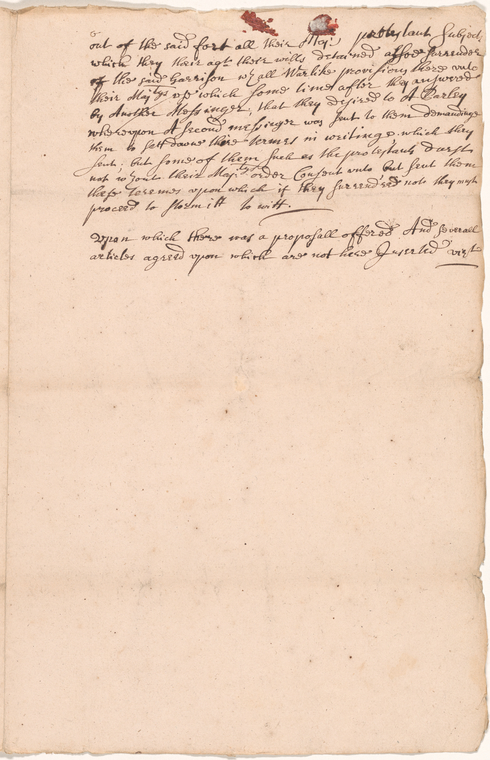 out of the said fort all their Maj: protestant Subject,
which they their agt their wills detained allsoe surrender
of the said Garrison wth all Warlike provisions there unto
their Majtys use which some time after they answered
by Another Messinger, that they desired to A Parley
whereupon A second messinger was sent to them demanding
them to sett downe there termes in writinge which they
sent. but some of them such as the protestants durst
not wthout their Majts order Consent unto but sent them
these termes upon which if they surrendred note they must
proceed to storm itt to witt.
Upon which there was a proposall offered And severall
articles agreed upon which are not here Inserted vizt